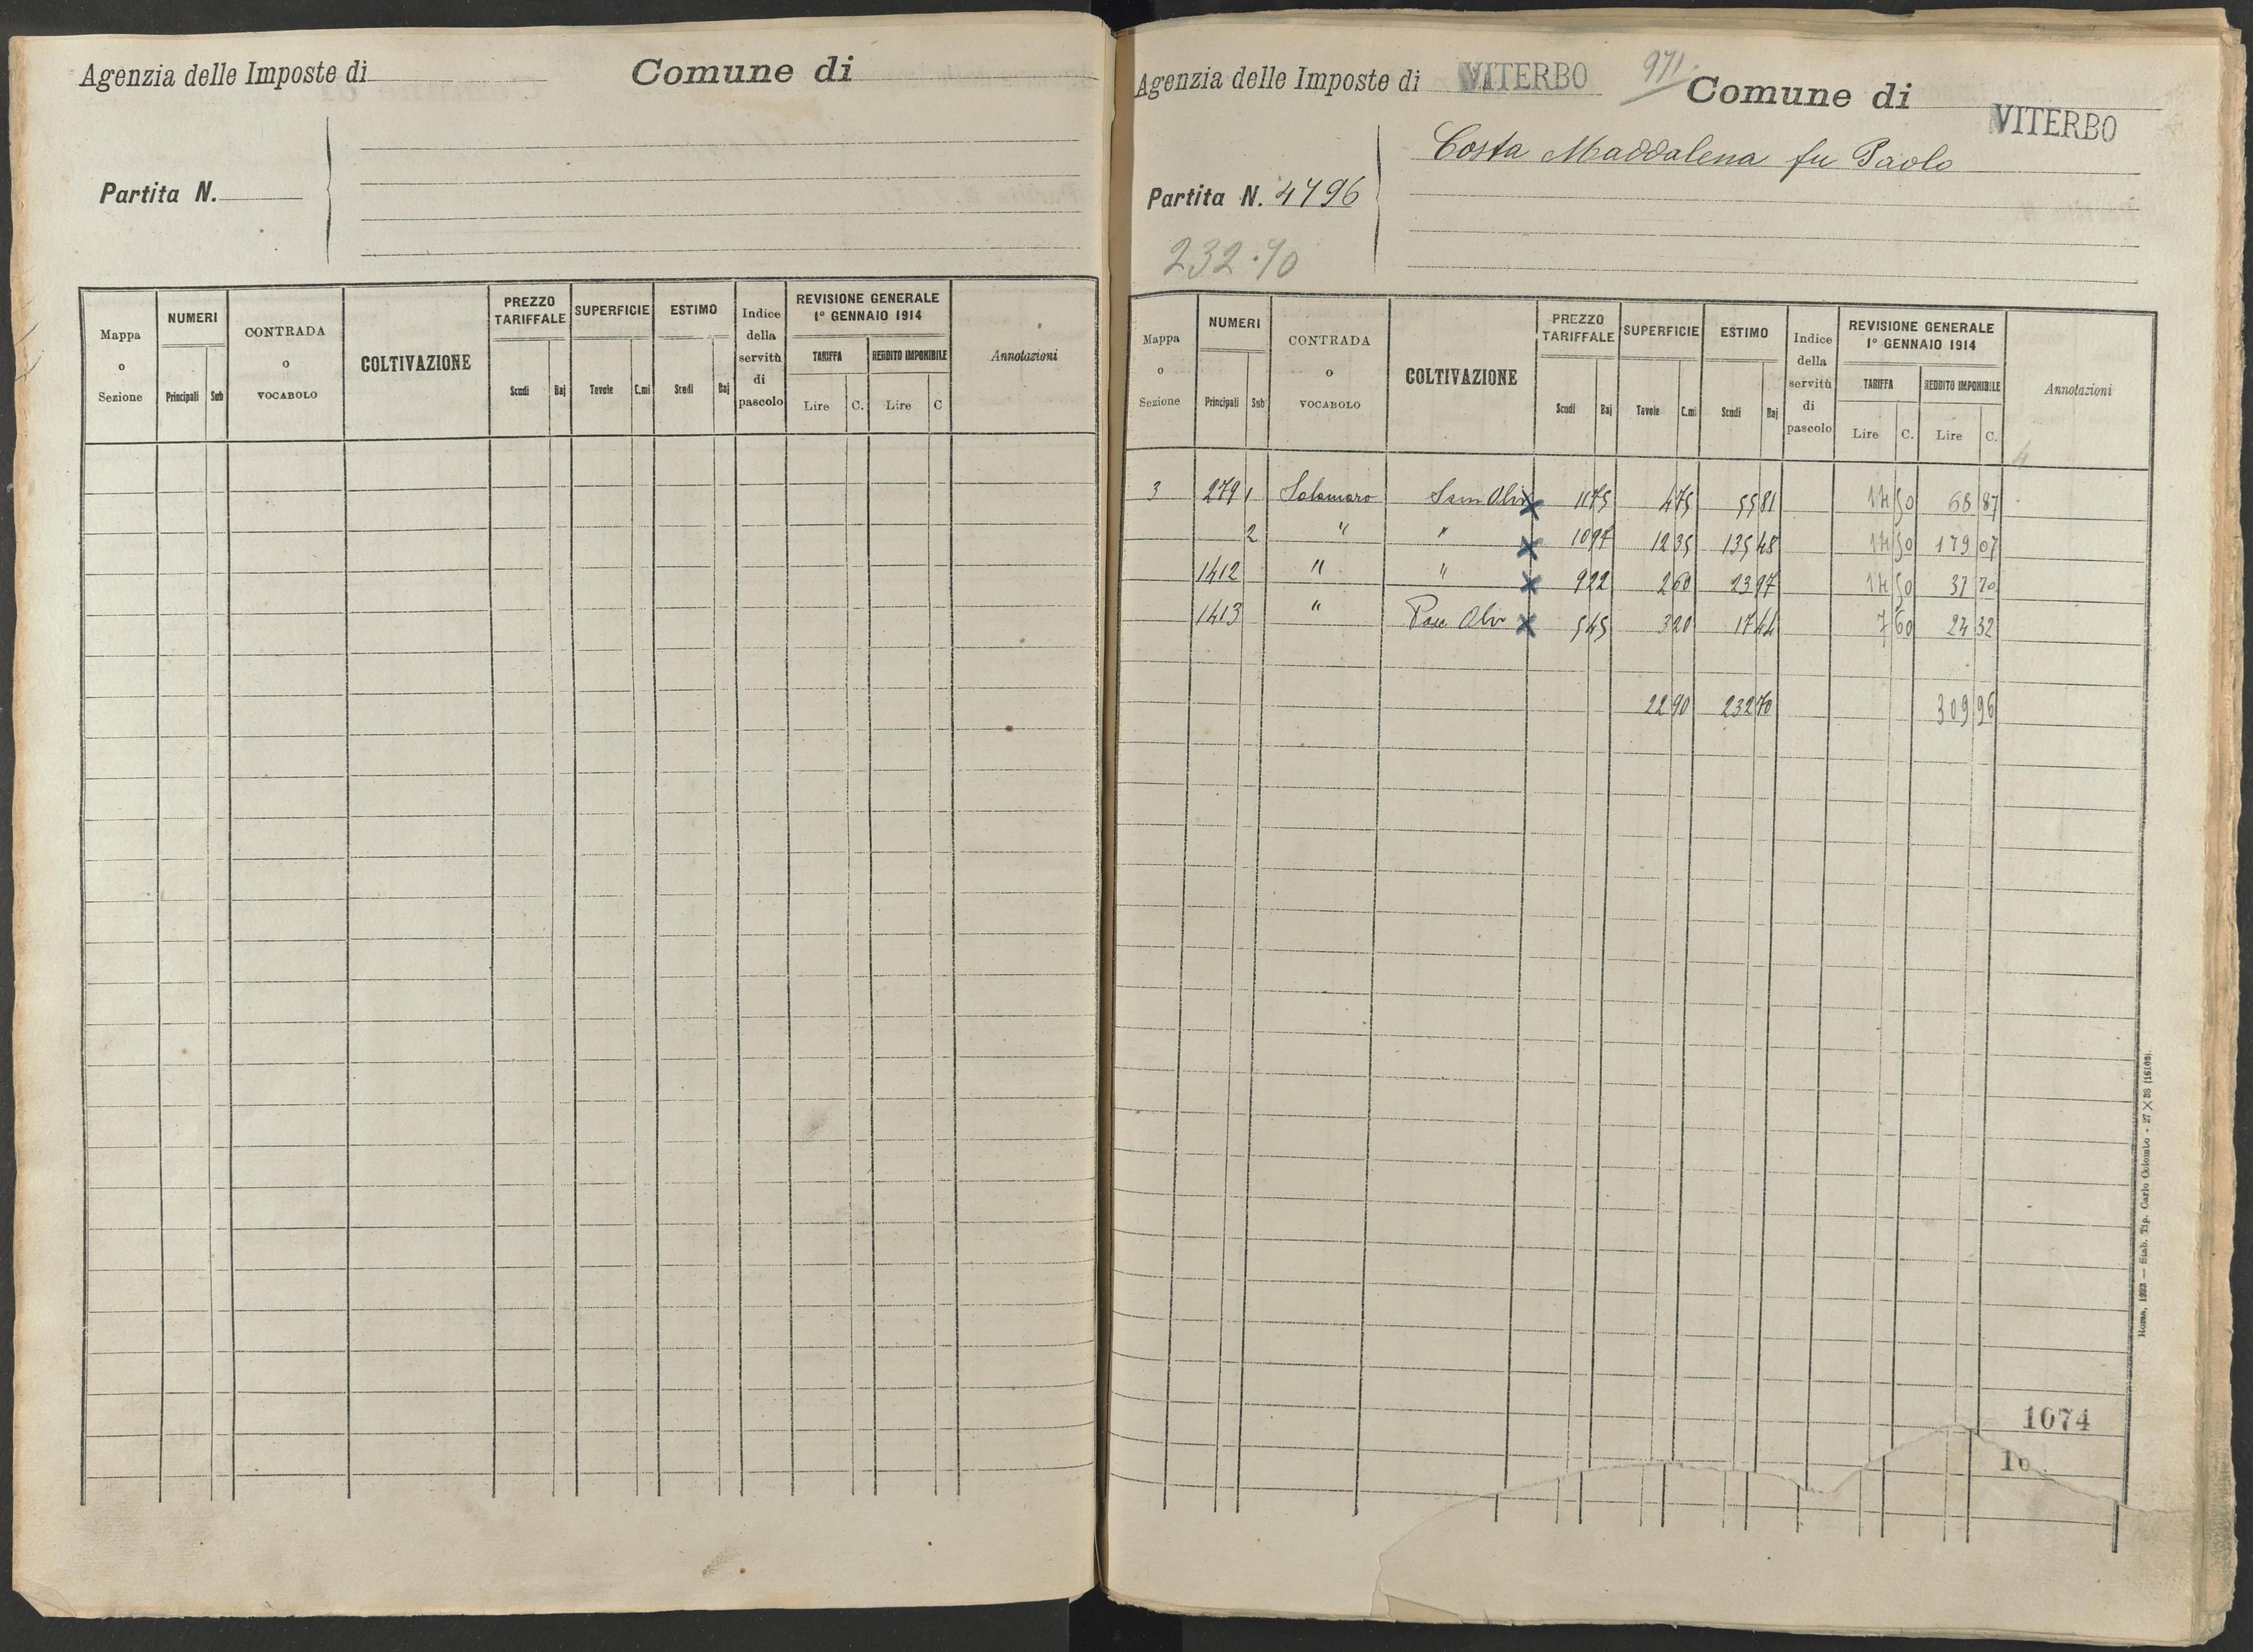 Agenzia delle Imposte di
Comune di
Partita N.
Mappa o Sezione
NUMERI
Principali Sub
CONTRADA o VOCABOLO
COLTIVAZIONE
PREZZO TARIFFALE
Scudi Baj
SUPERFICIE
Tavole C.mi
ESTIMO
Scudi Baj
Indice della servitù di pascolo
REVISIONE GENERALE
1° GENNAIO 1914
TARIFFA REDDITO IMPONIBILE
Lire C. Lire C
Annotazioni
Agenzia delle Imposte di VITERBO
971
Comune di VITERBO
Costa Maddalena fu Paolo
Partita N. 4796
232.70
Mappa o Sezione
NUMERI
Principali Sub
CONTRADA o VOCABOLO
COLTIVAZIONE
PREZZO TARIFFALE
Scudi Baj
SUPERFICIE
Tavole C.mi
ESTIMO
Scudi Baj
Indice della servitù di pascolo
REVISIONE GENERALE
1° GENNAIO 1914
TARIFFA REDDITO IMPONIBILE
Lire C. Lire C.
Annotazioni
4
3 279 1 Salamaro Sem Oliv X 11 75 4 75 55 81 14 50 68 87
2 " " X 10 97 12 35 135 48 14 50 179 07
1412 " " X 9 22 2 60 23 97 14 50 37 70
1413 " Pasc Oliv X 5 45 3 20 17 44 7 60 24 32
22 90 232 70 309 96
Roma, 1923 — Stab. Tip. Carlo Colombo - 27 X 38 (16103).
1074
10